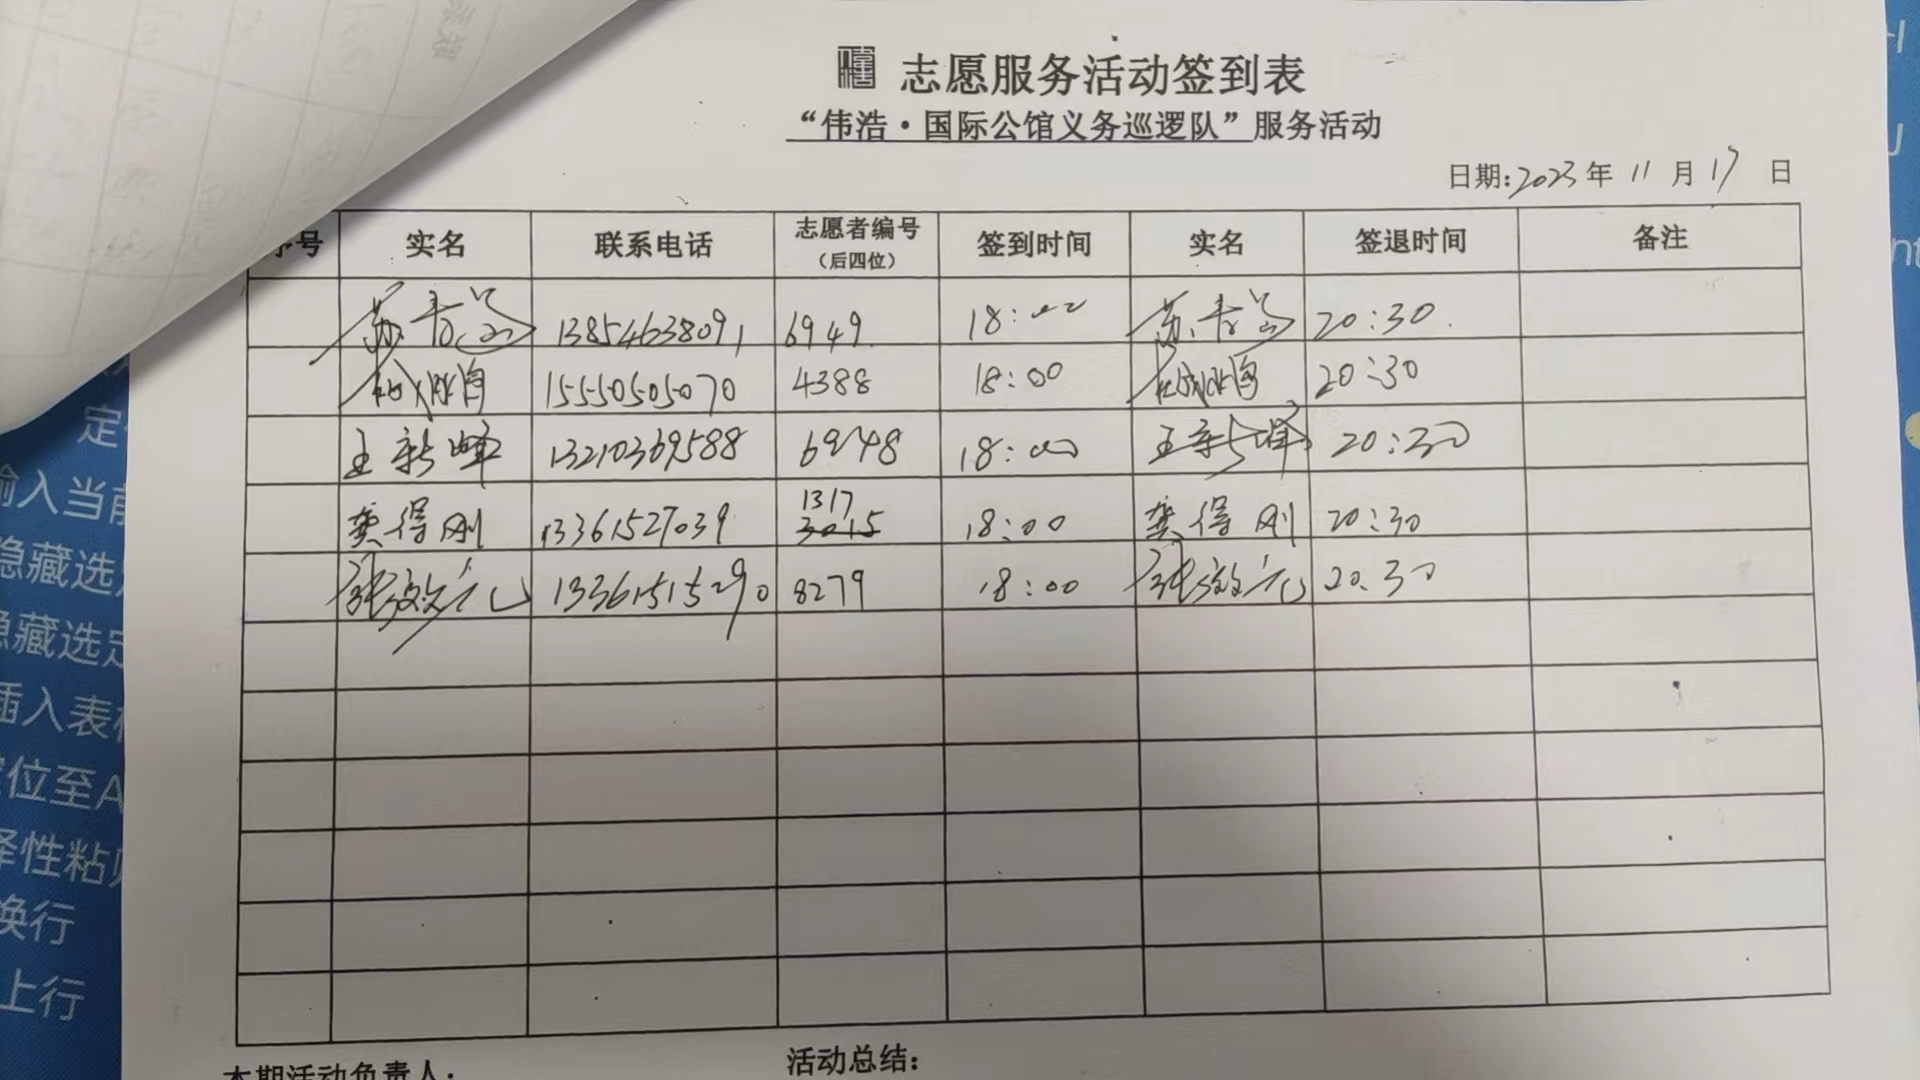 志愿服务活动签到表
“伟浩·国际公馆义务巡逻队”服务活动
日期:2023年 11 月 17 日
序号 实名 联系电话 志愿者编号（后四位） 签到时间 实名 签退时间 备注
13854638091 6949 18:00 20:30
15550505070 4388 18:00 20:30
王新峰 13210369588 6948 18:00 王新峰 20:30
1317
龚得刚 13361527039 3015 18:00 龚得刚 20:30
张效元 13361515290 8279 18:00 张效元 20:30
本期活动负责人:
活动总结:
输入当前
隐藏选定
隐藏选定
插入表格
定位至A
择性粘贴
换行
上行